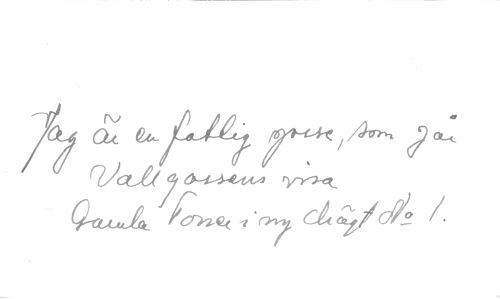 Jag är en fattig gosse, som går
Vallgossens visa
Gamla Toner i ny drägt No 1.